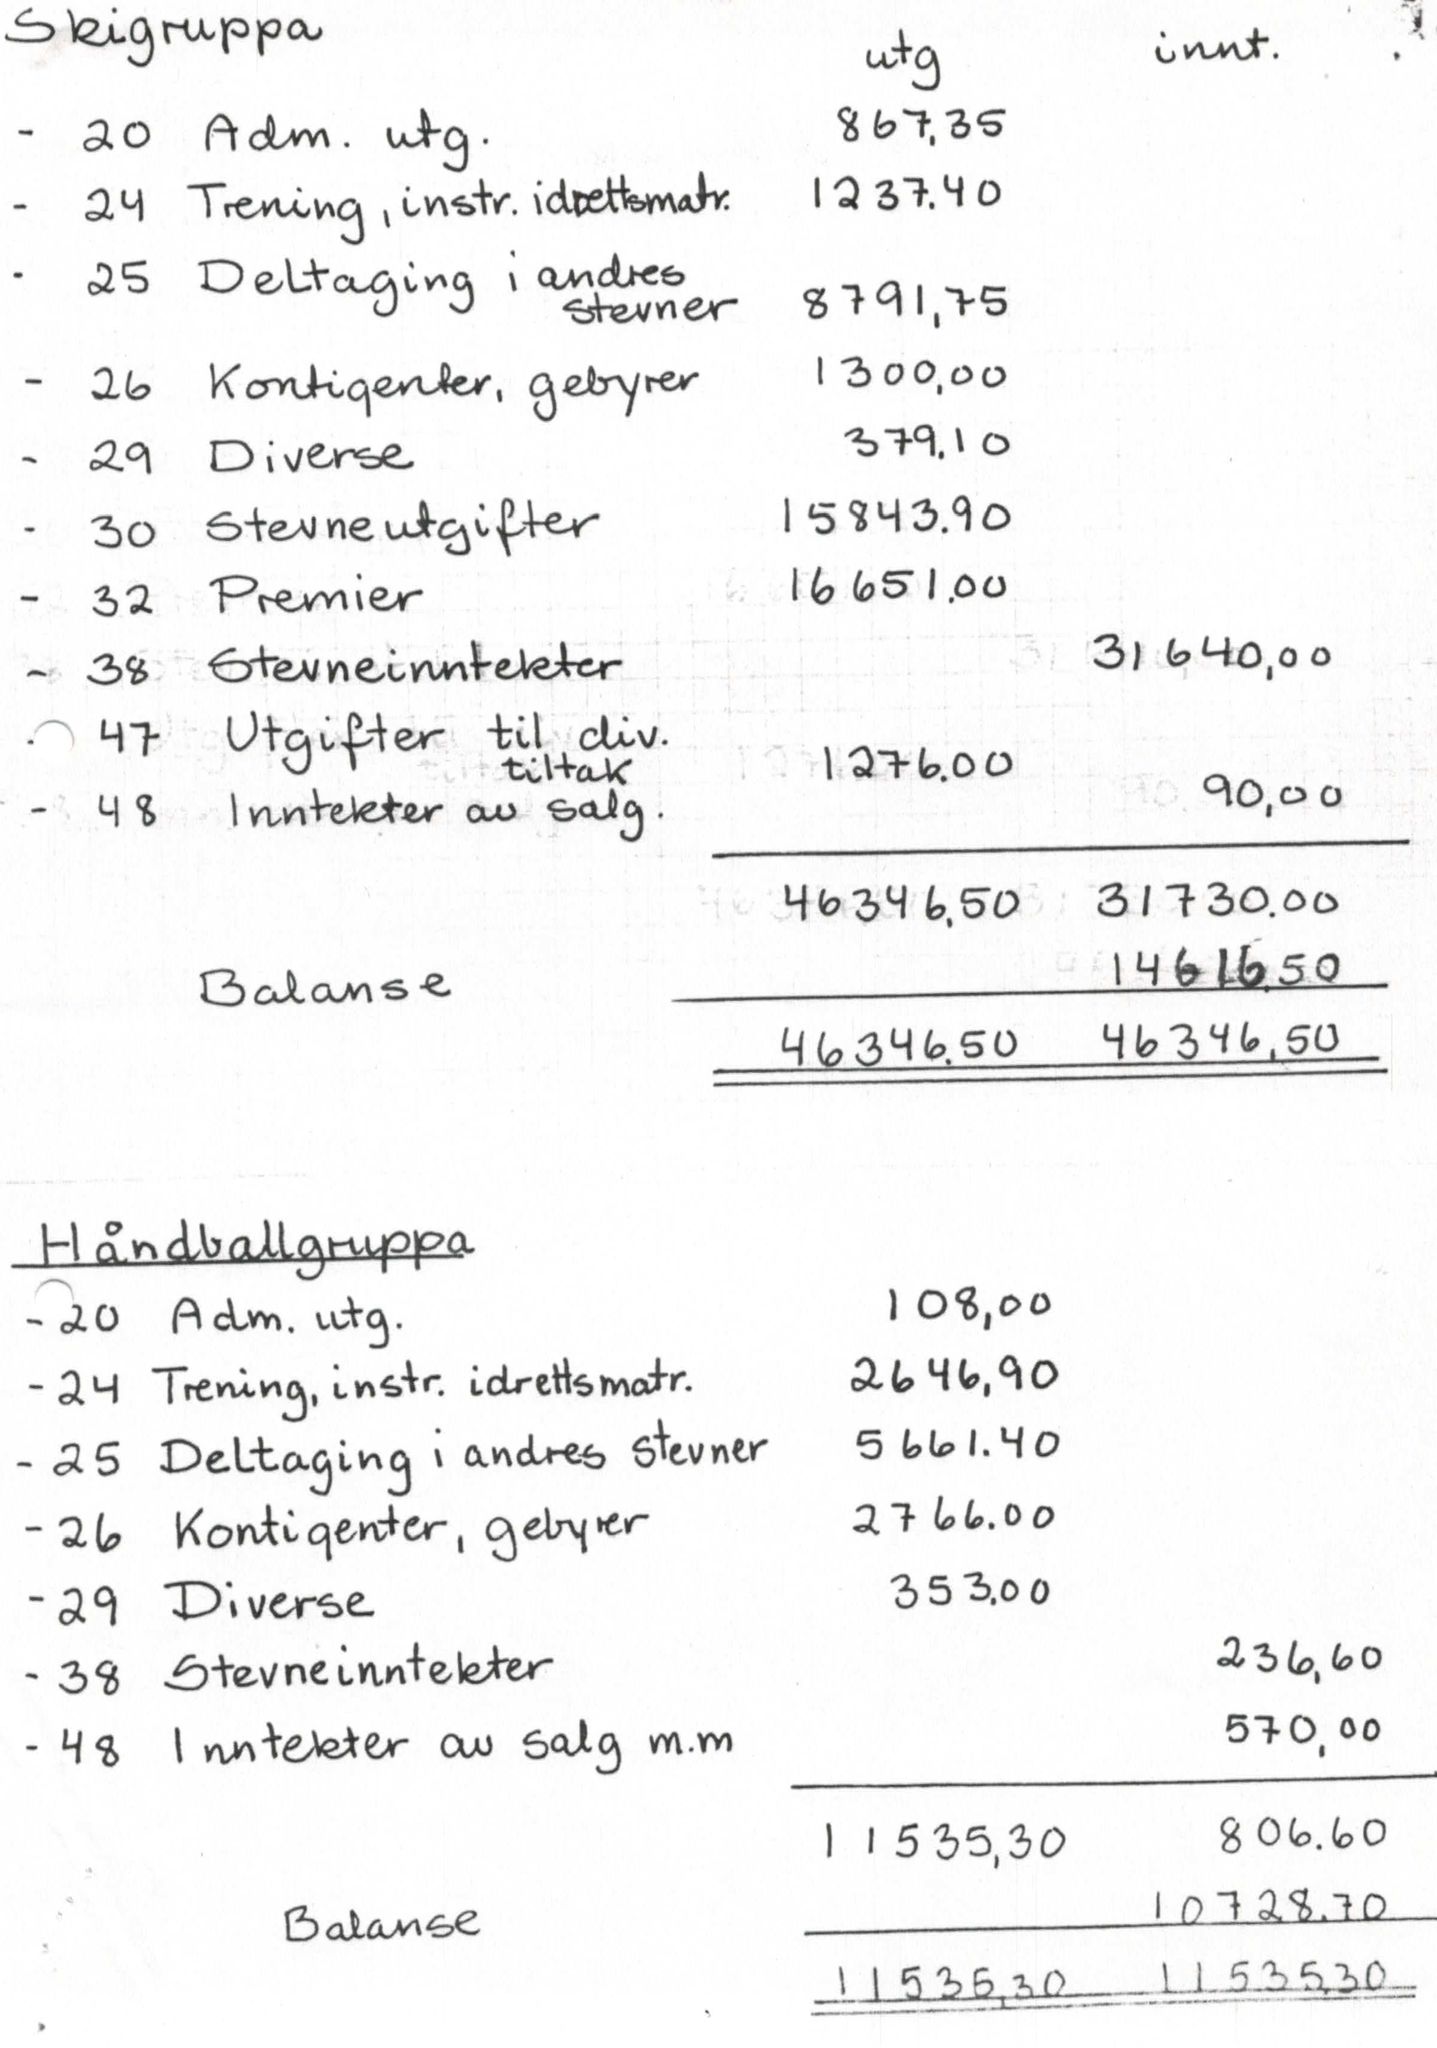 Skigruppa
utg innt.
- 20 Adm. utg. 867,35
- 24 Trening, instr. idrettsmatr. 1237.40
- 25 Deltaging i andres
stevner 8791,75
- 26 Kontigenter, gebyrer 1300,00
- 29 Diverse 379.10
- 30 Stevneutgifter 15843.90
- 32 Premier 16651.00
- 38 Stevneinntekter 31640,00
- 47 Utgifter til div.
tiltak 1276.00
- 48 Inntekter av salg. 90,00
46346,50 31730.00
Balanse 14616.50
46346.50 46346,50
Håndballgruppa
- 20 Adm. utg. 108,00
- 24 Trening, instr. idrettsmatr. 2646,90
- 25 Deltaging i andres stevner 5661.40
- 26 Kontigenter, gebyrer 2766.00
- 29 Diverse 353.00
- 38 Stevneinntekter 236,60
- 48 Inntekter av salg m.m 570,00
11535,30 806.60
Balanse 10728.70
11535,30 11535,30